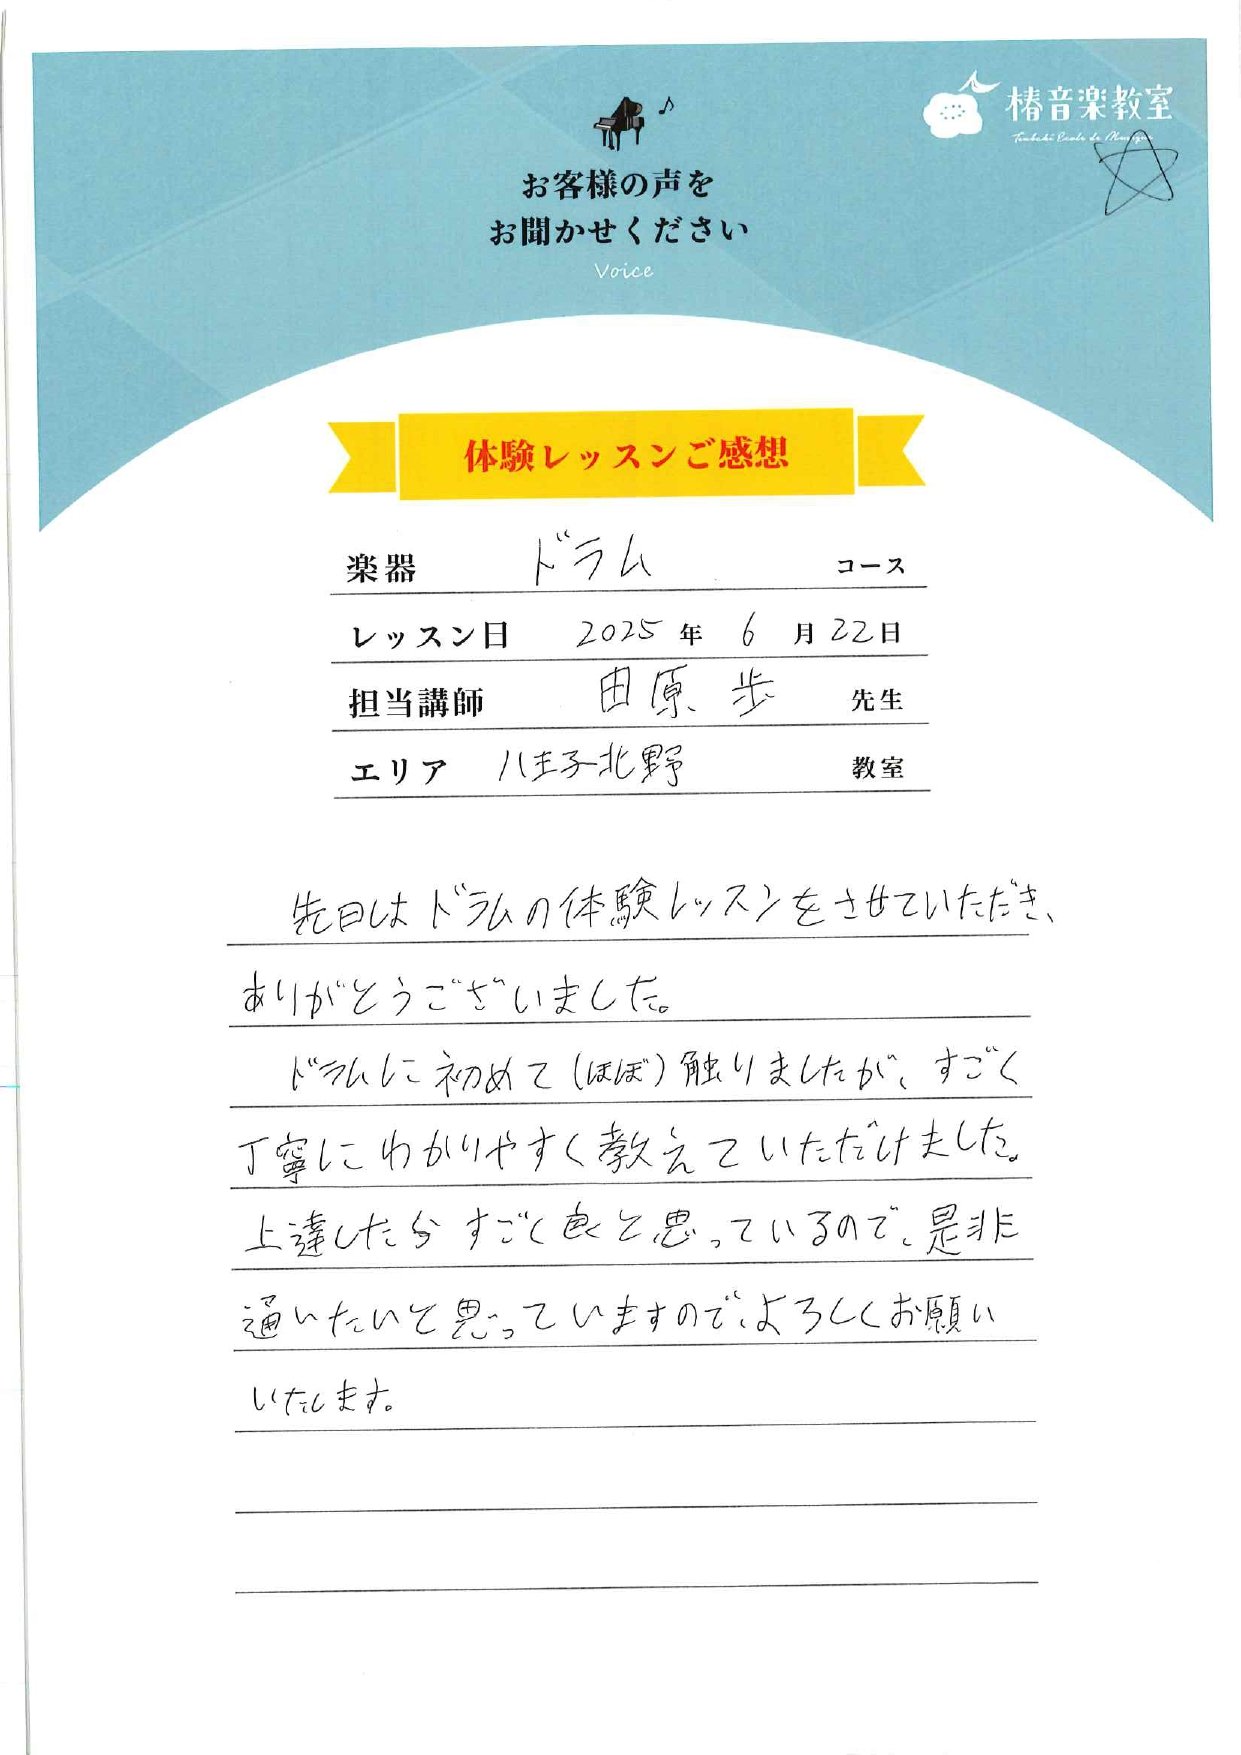 椿音楽教室
Tsubaki Ecole de Musique
お客様の声を
お聞かせください
Voice
体験レッスンご感想
楽器 ドラム コース
レッスン日 2025 年 6 月 22 日
担当講師 田原 歩 先生
エリア 八王子北野 教室
先日はドラムの体験レッスンをさせていただき、
ありがとうございました。
ドラムに初めて(ほぼ)触りましたが、すごく
丁寧にわかりやすく教えていただけました。
上達したら すごく良くと思っているので、是非
通いたいと思っていますので、よろしくお願い
いたします。